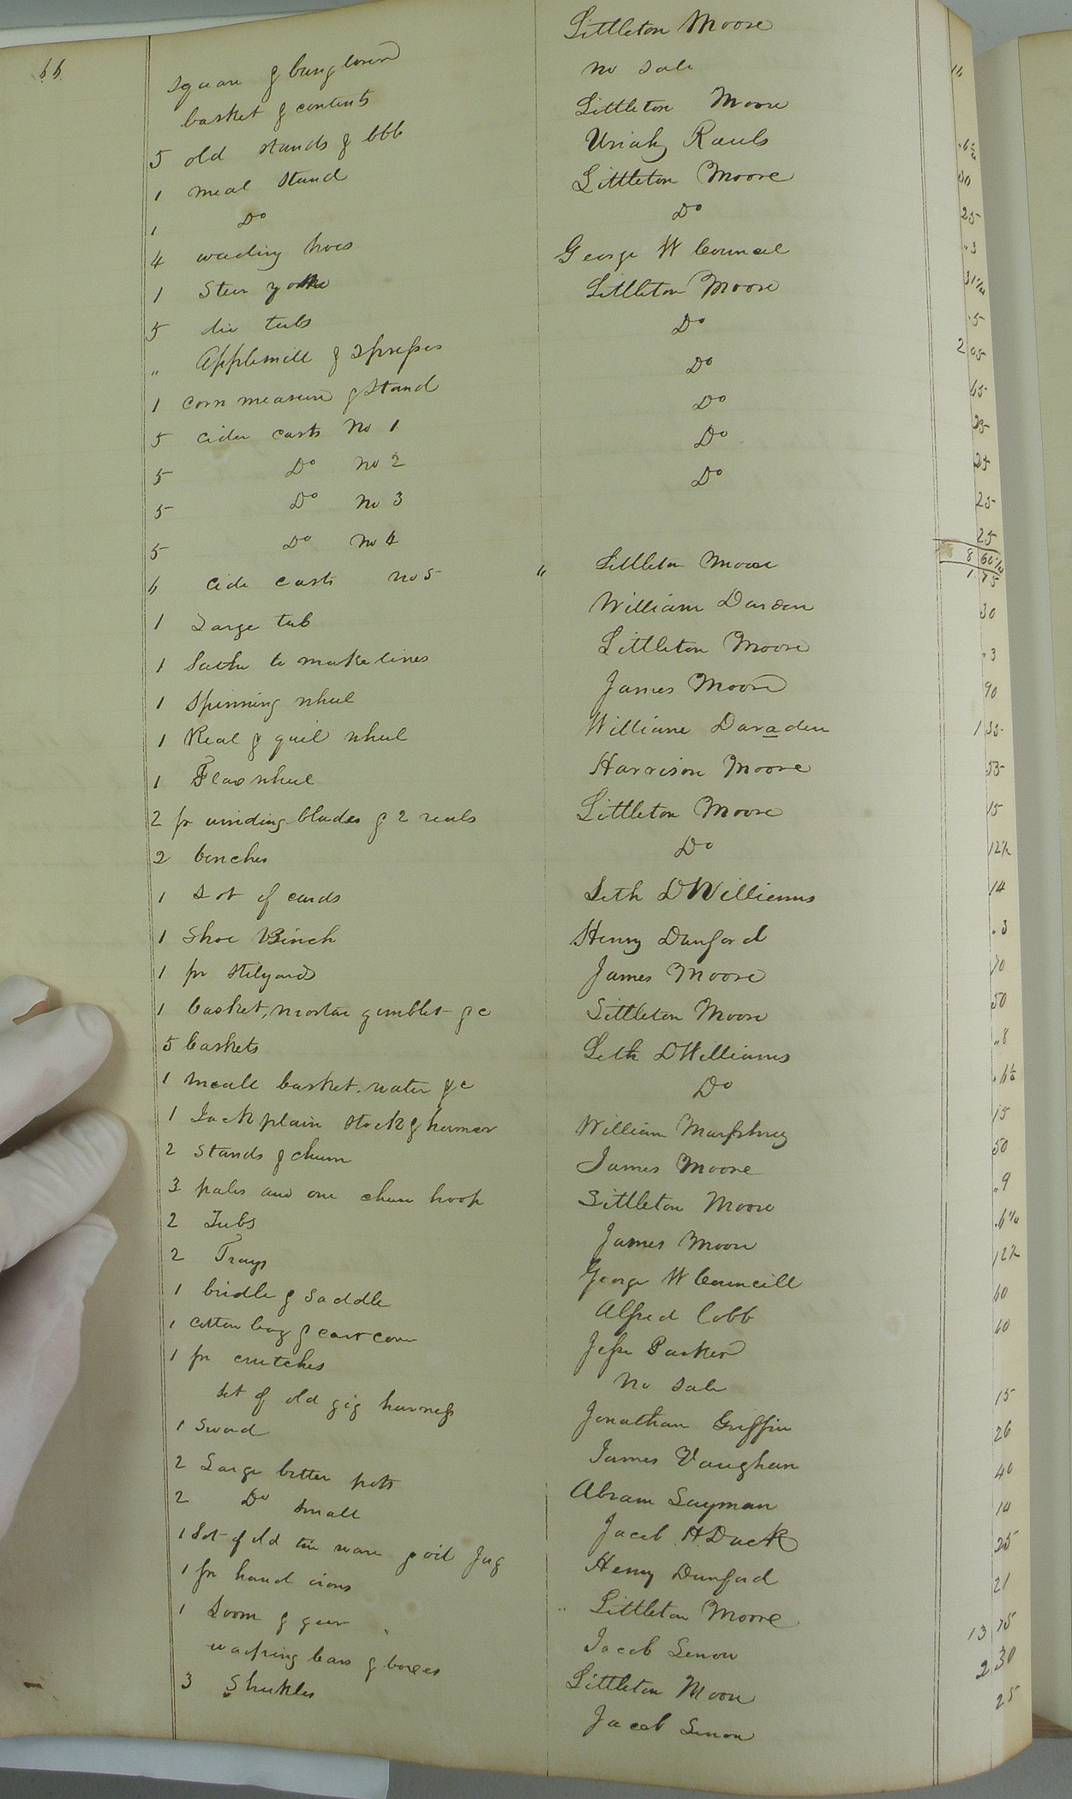 66
Littleton Moore
square & bung borer no sale 16
basket & contents Littleton Moore
5 old stands & bbls Uriah Rauls .6 1/4
1 meal stand Littleton Moore 30
1 Do Do 25
4 weeding hoes George W Council .3
1 Steer yoke Littleton Moore 31 1/4
5 tubs Do .5
" Applemill & 2 presses Do 2 05
1 corn measure & Stand Do 65
5 cider casts No 1 Do 25
5 Do No 2 Do 25
5 Do No 3 25
5 Do No 4 25
8 60 1/4
6 cide casts No 5 " Littleton Moore 1 75
1 Large tub William Darden 30
1 Lathe to make lines Littleton Moore .3
1 Spinning wheel James Moore 90
1 Real & quil wheel William Daraden 1 35
1 Flax wheel Harrison Moore 55
2 pr winding blades & 2 reals Littleton Moore 15
2 benches Do 12 1/2
1 Lot of cards Seth D Williams 14
1 Shoe Binch Henry Dunford .3
1 pr Stilyards James Moore 70
1 basket, mortar gimblet &c Littleton Moore 50
5 baskets Seth D Williams .8
1 meale basket. water &c Do .6 1/4
1 Jack plain stock & hammer William Murphrey 15
2 Stands & churn James Moore 50
3 pales and one churn hoop Littleton Moore .9
2 Tubs James Moore .6 1/4
2 Trays George W Councill 12 1/2
1 bridle & Saddle Alfred Cobb 60
1 Cotton bag & cart cover Jesse Parker 60
1 pr crutches no sale
set of old gig harness Jonathan Griffin 15
1 Sword James Vaughan 26
2 Large butter pots Abram Layman 40
2 Do small Jacob H Duck 10
1 Lot of old tin ware & oil Jug Henry Dunford 25
1 pr hand irons " Littleton Moore 21
1 Loom & gear Jacob Senow 13 75
warping bars & boxes Littleton Moore 2 30
3 Shukles Jacob Senow 25